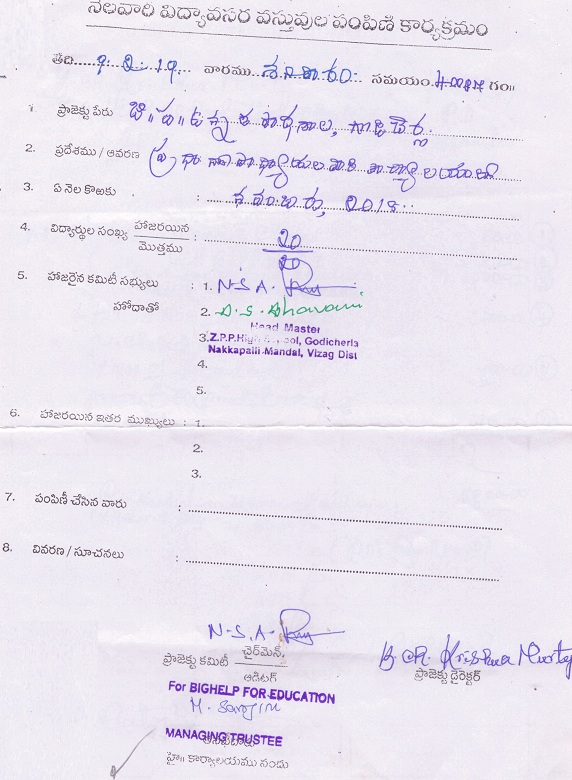 నెలవారి విద్యావసర వస్తువుల పంపిణి కార్యక్రమం
తేది.....9.2.19.... వారము..శనివారం.. సమయం.4.00PM గం॥
1. ప్రాజెక్టు పేరు జి॥ప॥ఉన్నత పాఠశాల, గొడిచెర్ల
2. ప్రదేశము / ఆవరణ ప్రధానోపాధ్యాయుల వారి కార్యాలయం
3. ఏ నెల కొఱకు : నవంబరు, 2018
4. విద్యార్థుల సంఖ్య హాజరయిన / మొత్తము : 20 / 20
5. హాజరైన కమిటీ సభ్యులు : 1. N.S.A. Raju
హోదాతో 2. D.S. Bhavani
Head Master
3. Z.P.P.High School, Godicherla
Nakkapalli-Mandal, Vizag Dist
4.
5.
6. హాజరయిన ఇతర ముఖ్యులు : 1.
2.
3.
7. పంపిణీ చేసిన వారు :
8. వివరణ / సూచనలు :
N.S.A. Raju
ప్రాజెక్టు కమిటీ చైర్‌మెన్. / ఆడిటర్
B Ch. Krishna Murty
ప్రాజెక్టు డైరెక్టర్
For BIGHELP FOR EDUCATION
MANAGING TRUSTEE
హై॥ కార్యాలయము నందు